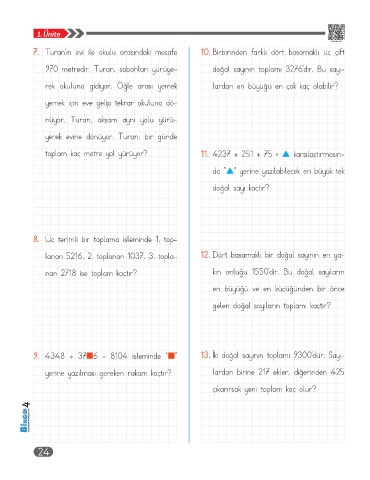 1. Ünite
7. Turan'ın evi ile okulu arasındaki mesafe
970 metredir. Turan, sabahları yürüye-
rek okuluna gidiyor. Öğle arası yemek
yemek için eve gelip tekrar okuluna dö-
nüyor. Turan, akşam aynı yolu yürü-
yerek evine dönüyor. Turan, bir günde
toplam kaç metre yol yürüyor?
8. Üç terimli bir toplama işleminde 1. top-
lanan 5216, 2. toplanan 1037, 3. topla-
nan 2718 ise toplam kaçtır?
9. 4348 + 37■6 = 8104 işleminde "■"
yerine yazılması gereken rakam kaçtır?
10. Birbirinden farklı dört basamaklı üç çift
doğal sayının toplamı 3276'dır. Bu sayı-
lardan en büyüğü en çok kaç olabilir?
11. 4237 + 251 + 75 > ▲ karşılaştırmasın-
da "▲" yerine yazılabilecek en büyük tek
doğal sayı kaçtır?
12. Dört basamaklı bir doğal sayının en ya-
kın onluğu 1550'dir. Bu doğal sayıların
en büyüğü ve en küçüğünden bir önce
gelen doğal sayıların toplamı kaçtır?
13. İki doğal sayının toplamı 9300'dür. Sayı-
lardan birine 217 ekler, diğerinden 425
çıkarırsak yeni toplam kaç olur?
BİNGO 4
24